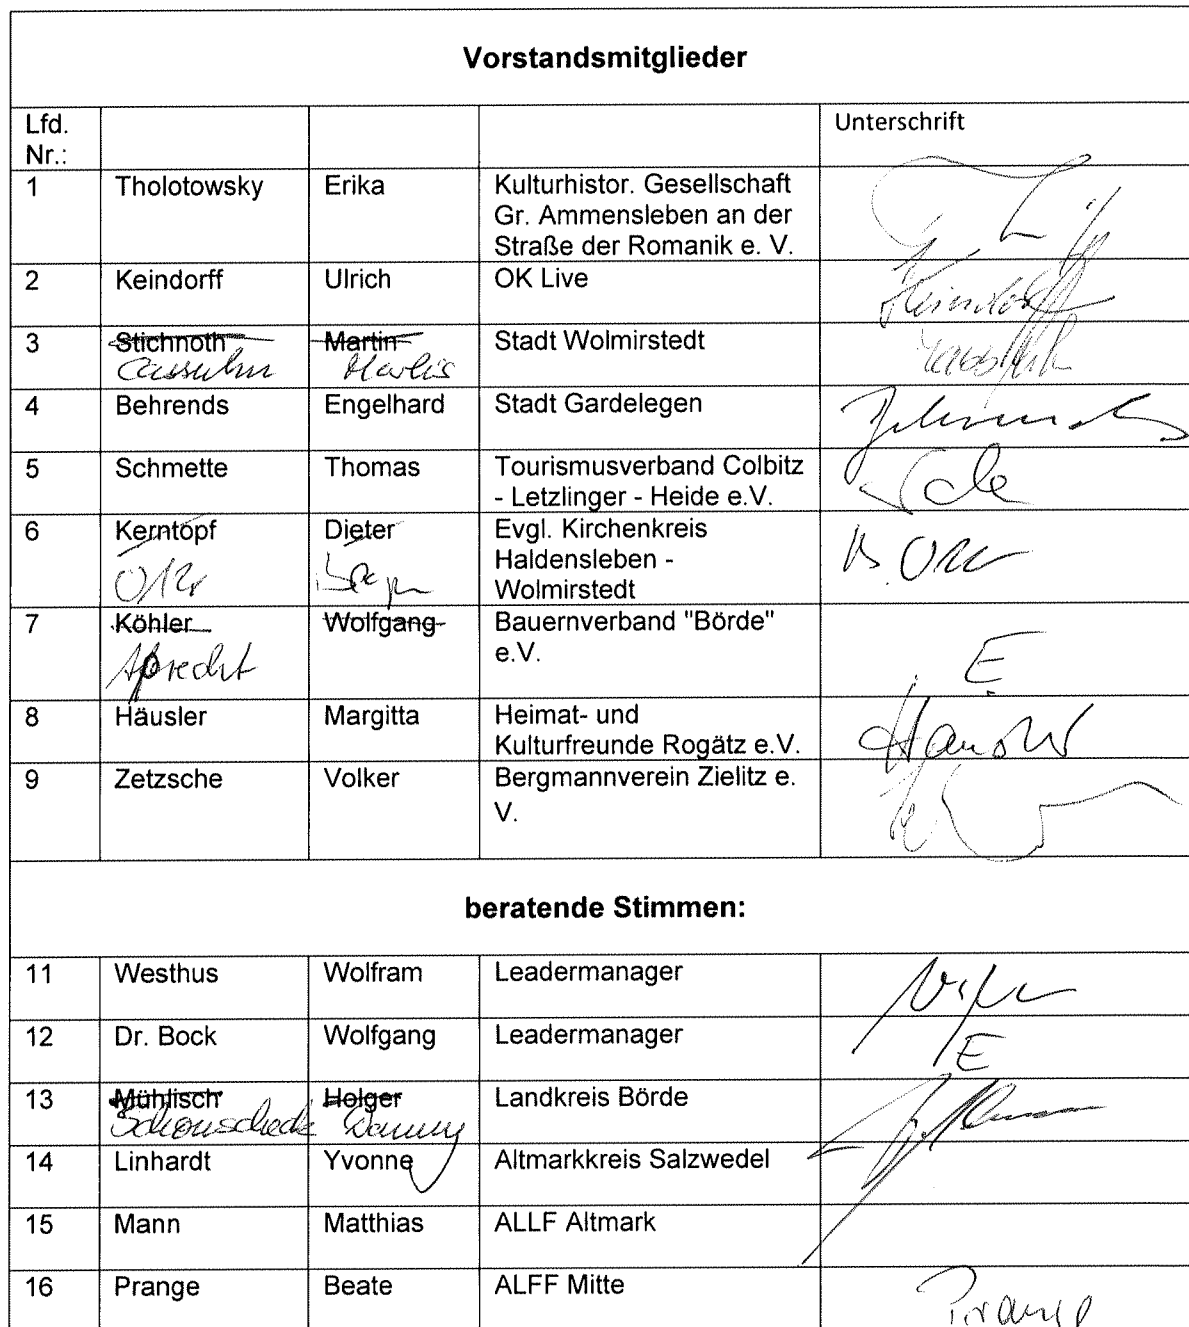 Vorstandsmitglieder
Lfd. Nr.: Unterschrift
1 Tholotowsky Erika Kulturhistor. Gesellschaft
Gr. Ammensleben an der
Straße der Romanik e. V.
2 Keindorff Ulrich OK Live Keindorff
3 Stichnoth Martin Stadt Wolmirstedt
Cassuhn Marlis
4 Behrends Engelhard Stadt Gardelegen Behrends
5 Schmette Thomas Tourismusverband Colbitz
- Letzlinger - Heide e.V.
6 Kerntopf Dieter Evgl. Kirchenkreis
Haldensleben -
Wolmirstedt
7 Köhler Wolfgang Bauernverband "Börde"
e.V. E
8 Häusler Margitta Heimat- und
Kulturfreunde Rogätz e.V.
9 Zetzsche Volker Bergmannverein Zielitz e.
V.
beratende Stimmen:
11 Westhus Wolfram Leadermanager
12 Dr. Bock Wolfgang Leadermanager E
13 Mühlisch Holger Landkreis Börde
Danny
14 Linhardt Yvonne Altmarkkreis Salzwedel
15 Mann Matthias ALLF Altmark
16 Prange Beate ALFF Mitte Prange